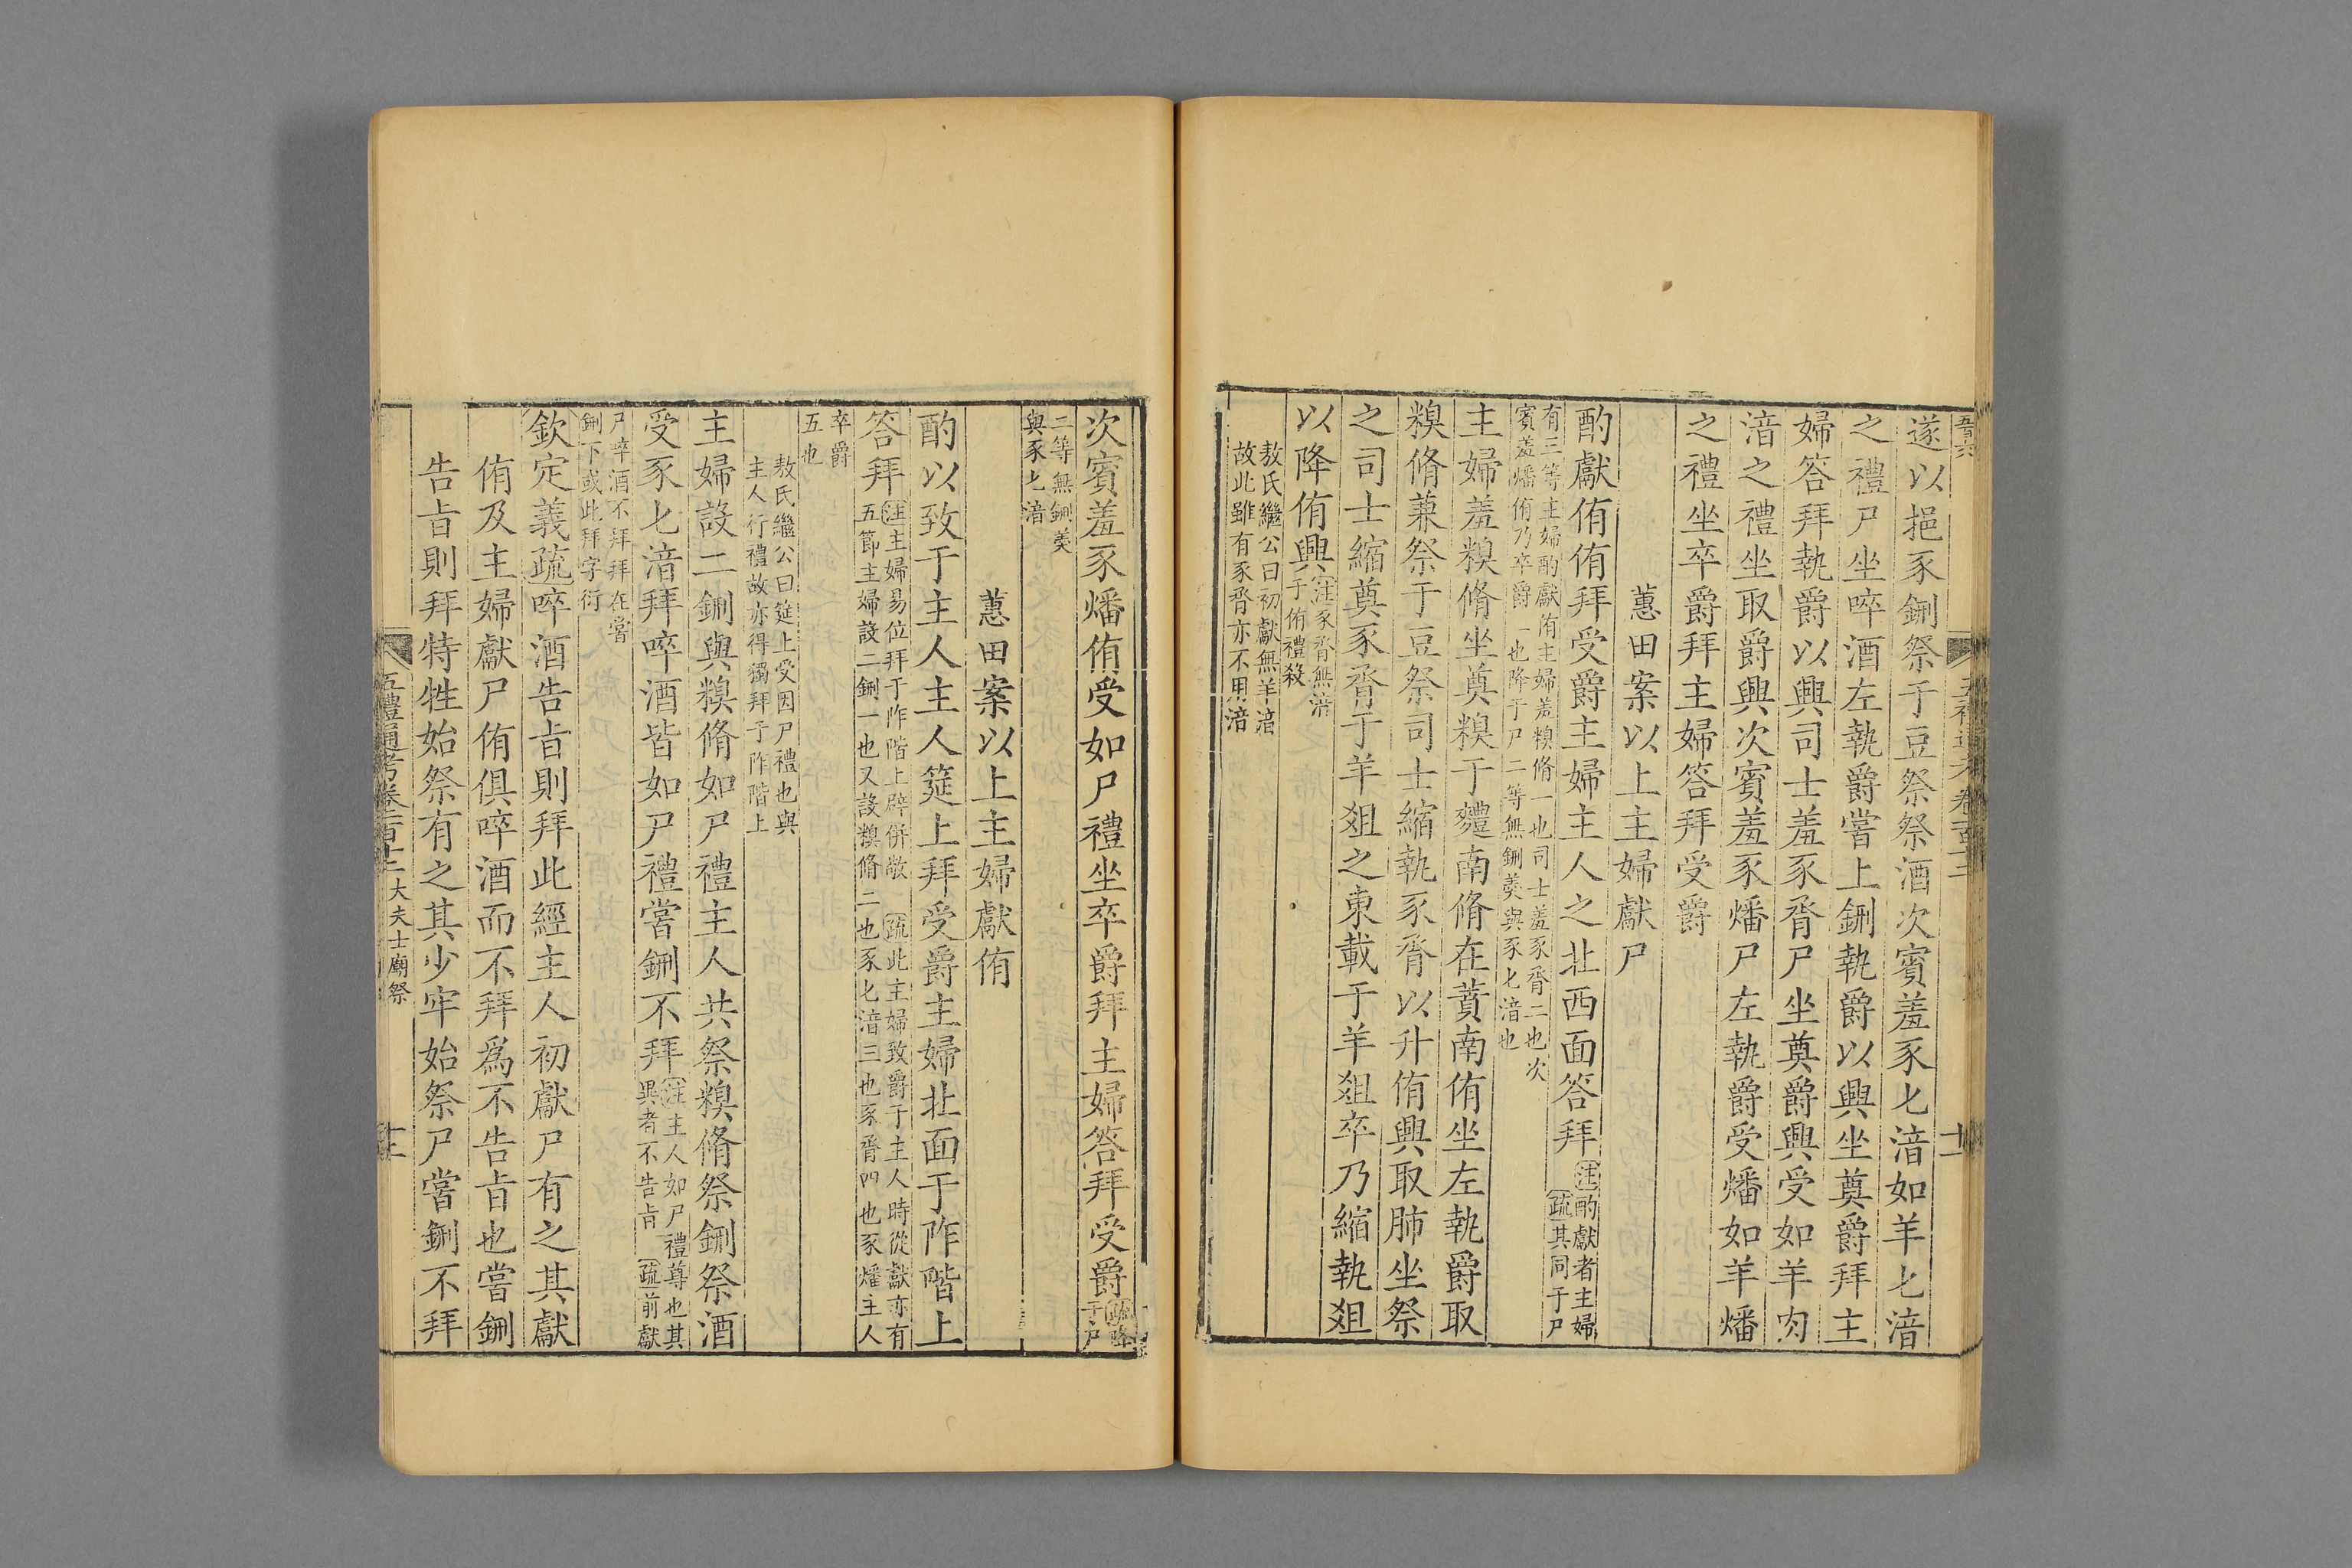 遂以挹豕鉶祭于豆祭祭酒次賓羞豕匕湆如羊匕湆
之禮尸坐啐酒左執爵嘗上鉶執爵以興坐奠爵拜主
婦答拜執爵以興司士羞豕脀尸坐奠爵興受如羊肉
湆之禮坐取爵興次賓羞豕燔尸左執爵受燔如羊燔
之禮坐卒爵拜主婦答拜受爵
蕙田案以上主婦獻尸
酌獻侑侑拜受爵主婦主人之北西面答拜注酌獻者主婦
疏其同于尸
有三等主婦酌獻侑主婦羞糗脩一也司士羞豕脀二也次
賓羞燔侑乃卒爵一也降于尸二等無鉶羹與豕匕湆也
主婦羞糗脩坐奠糗于麷南脩在蕡南侑坐左執爵取
糗脩兼祭于豆祭司士縮執豕脀以升侑興取肺坐祭
之司士縮奠豕脀于羊爼之東載于羊爼卒乃縮執爼
以降侑興注豕脀無湆
于侑禮殺
敖氏繼公曰初獻無羊湆
故此雖有豕脀亦不用湆
次賓羞豕燔侑受如尸禮坐卒爵拜主婦答拜受爵
于尸
二等無鉶羹
與豕匕湆
蕙田案以上主婦獻侑
酌以致于主人主人筵上拜受爵主婦北面于阼階上
答拜注主婦易位拜于阼階上辟併敬 疏此主婦致爵于主人時從獻亦有
五節主婦設二鉶一也又設糗脩二也豕匕湆三也豕脀四也豕燔主人
卒爵
五也
敖氏繼公曰筵上受因尸禮也與
主人行禮故亦得獨拜于阼階上
主婦設二鉶與糗脩如尸禮主人共祭糗脩祭鉶祭酒
受豕匕湆拜啐酒皆如尸禮嘗鉶不拜注主人如尸禮尊也其
異者不告旨 疏前獻
尸啐酒不拜拜在嘗
鉶下或此拜字衍
欽定義疏啐酒告旨則拜此經主人初獻尸有之其獻
侑及主婦獻尸侑俱啐酒而不拜爲不告旨也嘗鉶
告旨則拜特牲始祭有之其少牢始祭尸嘗鉶不拜
五禮通考卷一百十二 大夫士廟祭